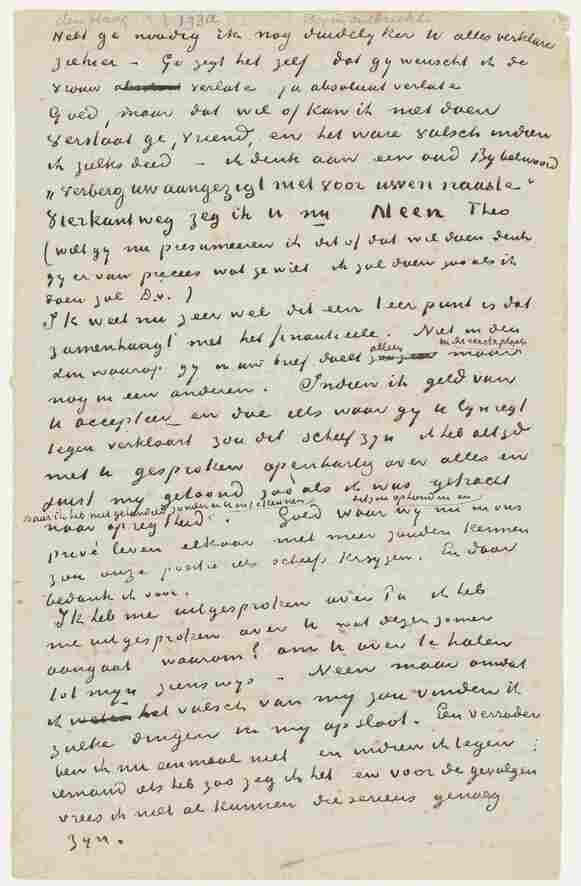 den Haag 1332
Hebt ge noodig ik nog duidelyker U alles verklare
ziehier – Ge zegt het zelf dat gy wenscht ik de
vrouw verlate ja absoluut verlate
Goed, maar dat wil of kan ik niet doen
Verstaat ge, vriend, en het ware valsch indien
ik zulks deed – ik denk aan een oud Bybelwoord
„Verberg uw aangezigt niet voor uwen naaste"
Vierkantweg zeg ik U nu Neen Theo
(wilt gy nu presumeeren ik dit of dat wil doen denk
gy er van precies wat ge wilt ik zal doen zooals ik
doen zal D.v.)
Ik weet nu zeer wel dit een teer punt is dat
zamenhangt met het finantieele. Niet in den
alleen in de eerste plaats
zin waarop gy in uw brief doelt maar
nog in een anderen. Indien ik geld van
U accepteer en doe iets waar gy U lynregt
tegen verklaart zou dit scheef zyn ik heb altyd
met U gesproken openhartig over alles en
juist my getoond zooals ik was getracht
naar opregtheid. Goed waar wy nu in ons
privé leven elkaar niet meer zouden kennen
zou onze positie iets scheefs krygen. En daar
bedank ik voor.
Ik heb me uitgesproken over Pa ik heb
me uitgesproken over U wat dezen zomer
aangaat waarom? om U over te halen
tot myn zienswys – Neen maar omdat
ik het valsch van my zou vinden ik
zulke dingen in my opsloot. Een verrader
ben ik nu eenmaal niet en indien ik tegen
iemand iets heb zoo zeg ik het en voor de gevolgen
vrees ik niet al kunnen die serieus genoeg
zyn.